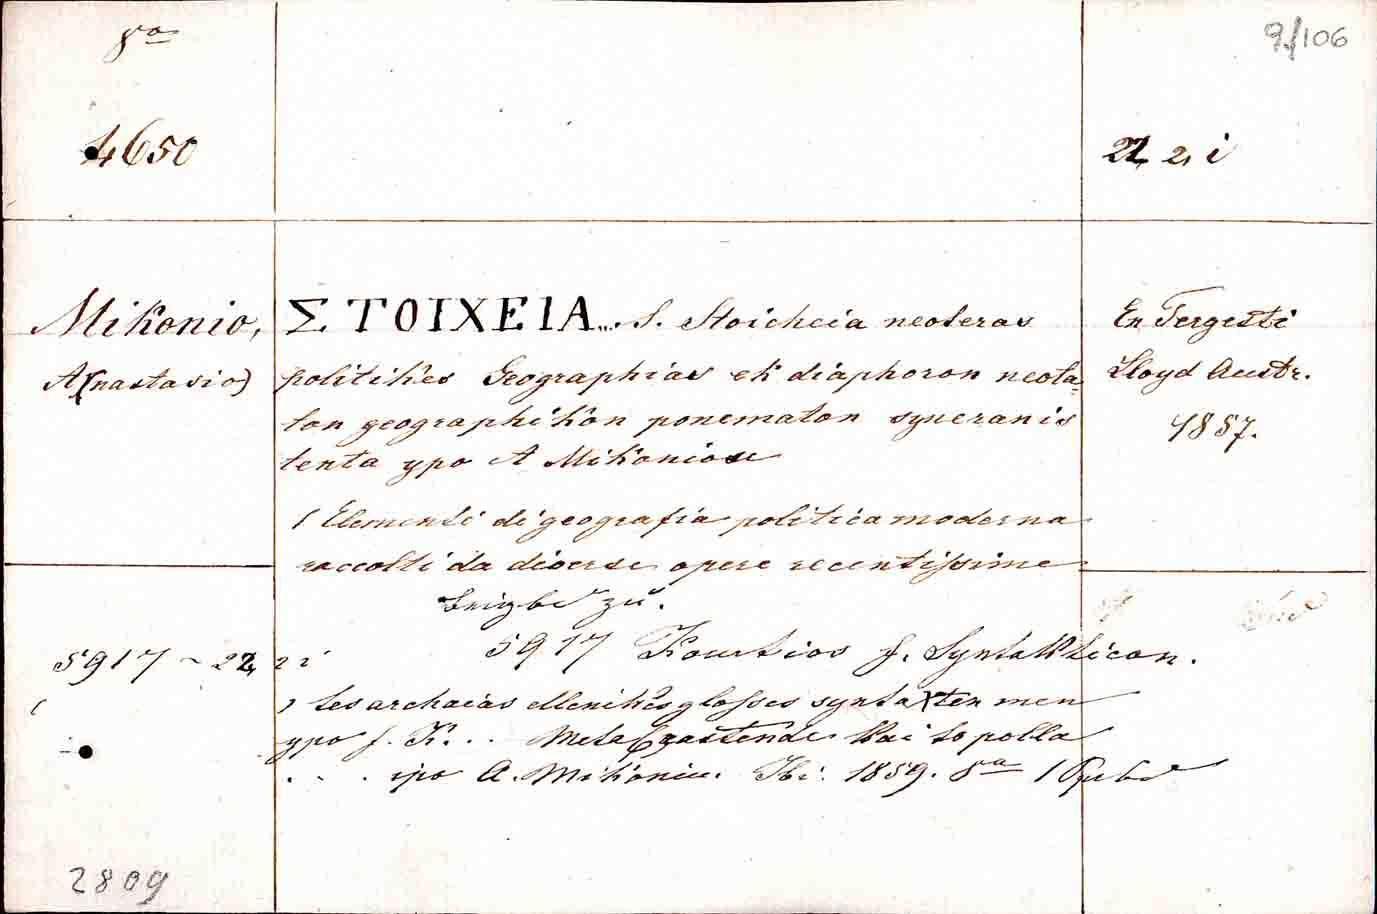 8º
9/106
4650
22 2, i
Mikonio,
A(nastasio)
ΣΤΟΙΧΕΙΑ... S. Stoicheia neoteras
politikes Geographias ek diaphoron neota=
ton geographikon ponematon syneranis
tenta ypo A Mikoniou
( Elementi di geografia politica moderna
raccolti da diverse opere recentissime
En Tergesti
Lloyd Austr.
1857.
5917 ~ 22, 2 i
5917 Kourtios f. Syntakticon.
) tes archaias ellenikes glosses syntaxten men
ypo f. K... Metexgastende kai to polla
. . . ipo A. Mikoniu. Ibi. 1859. 8º 1
2809